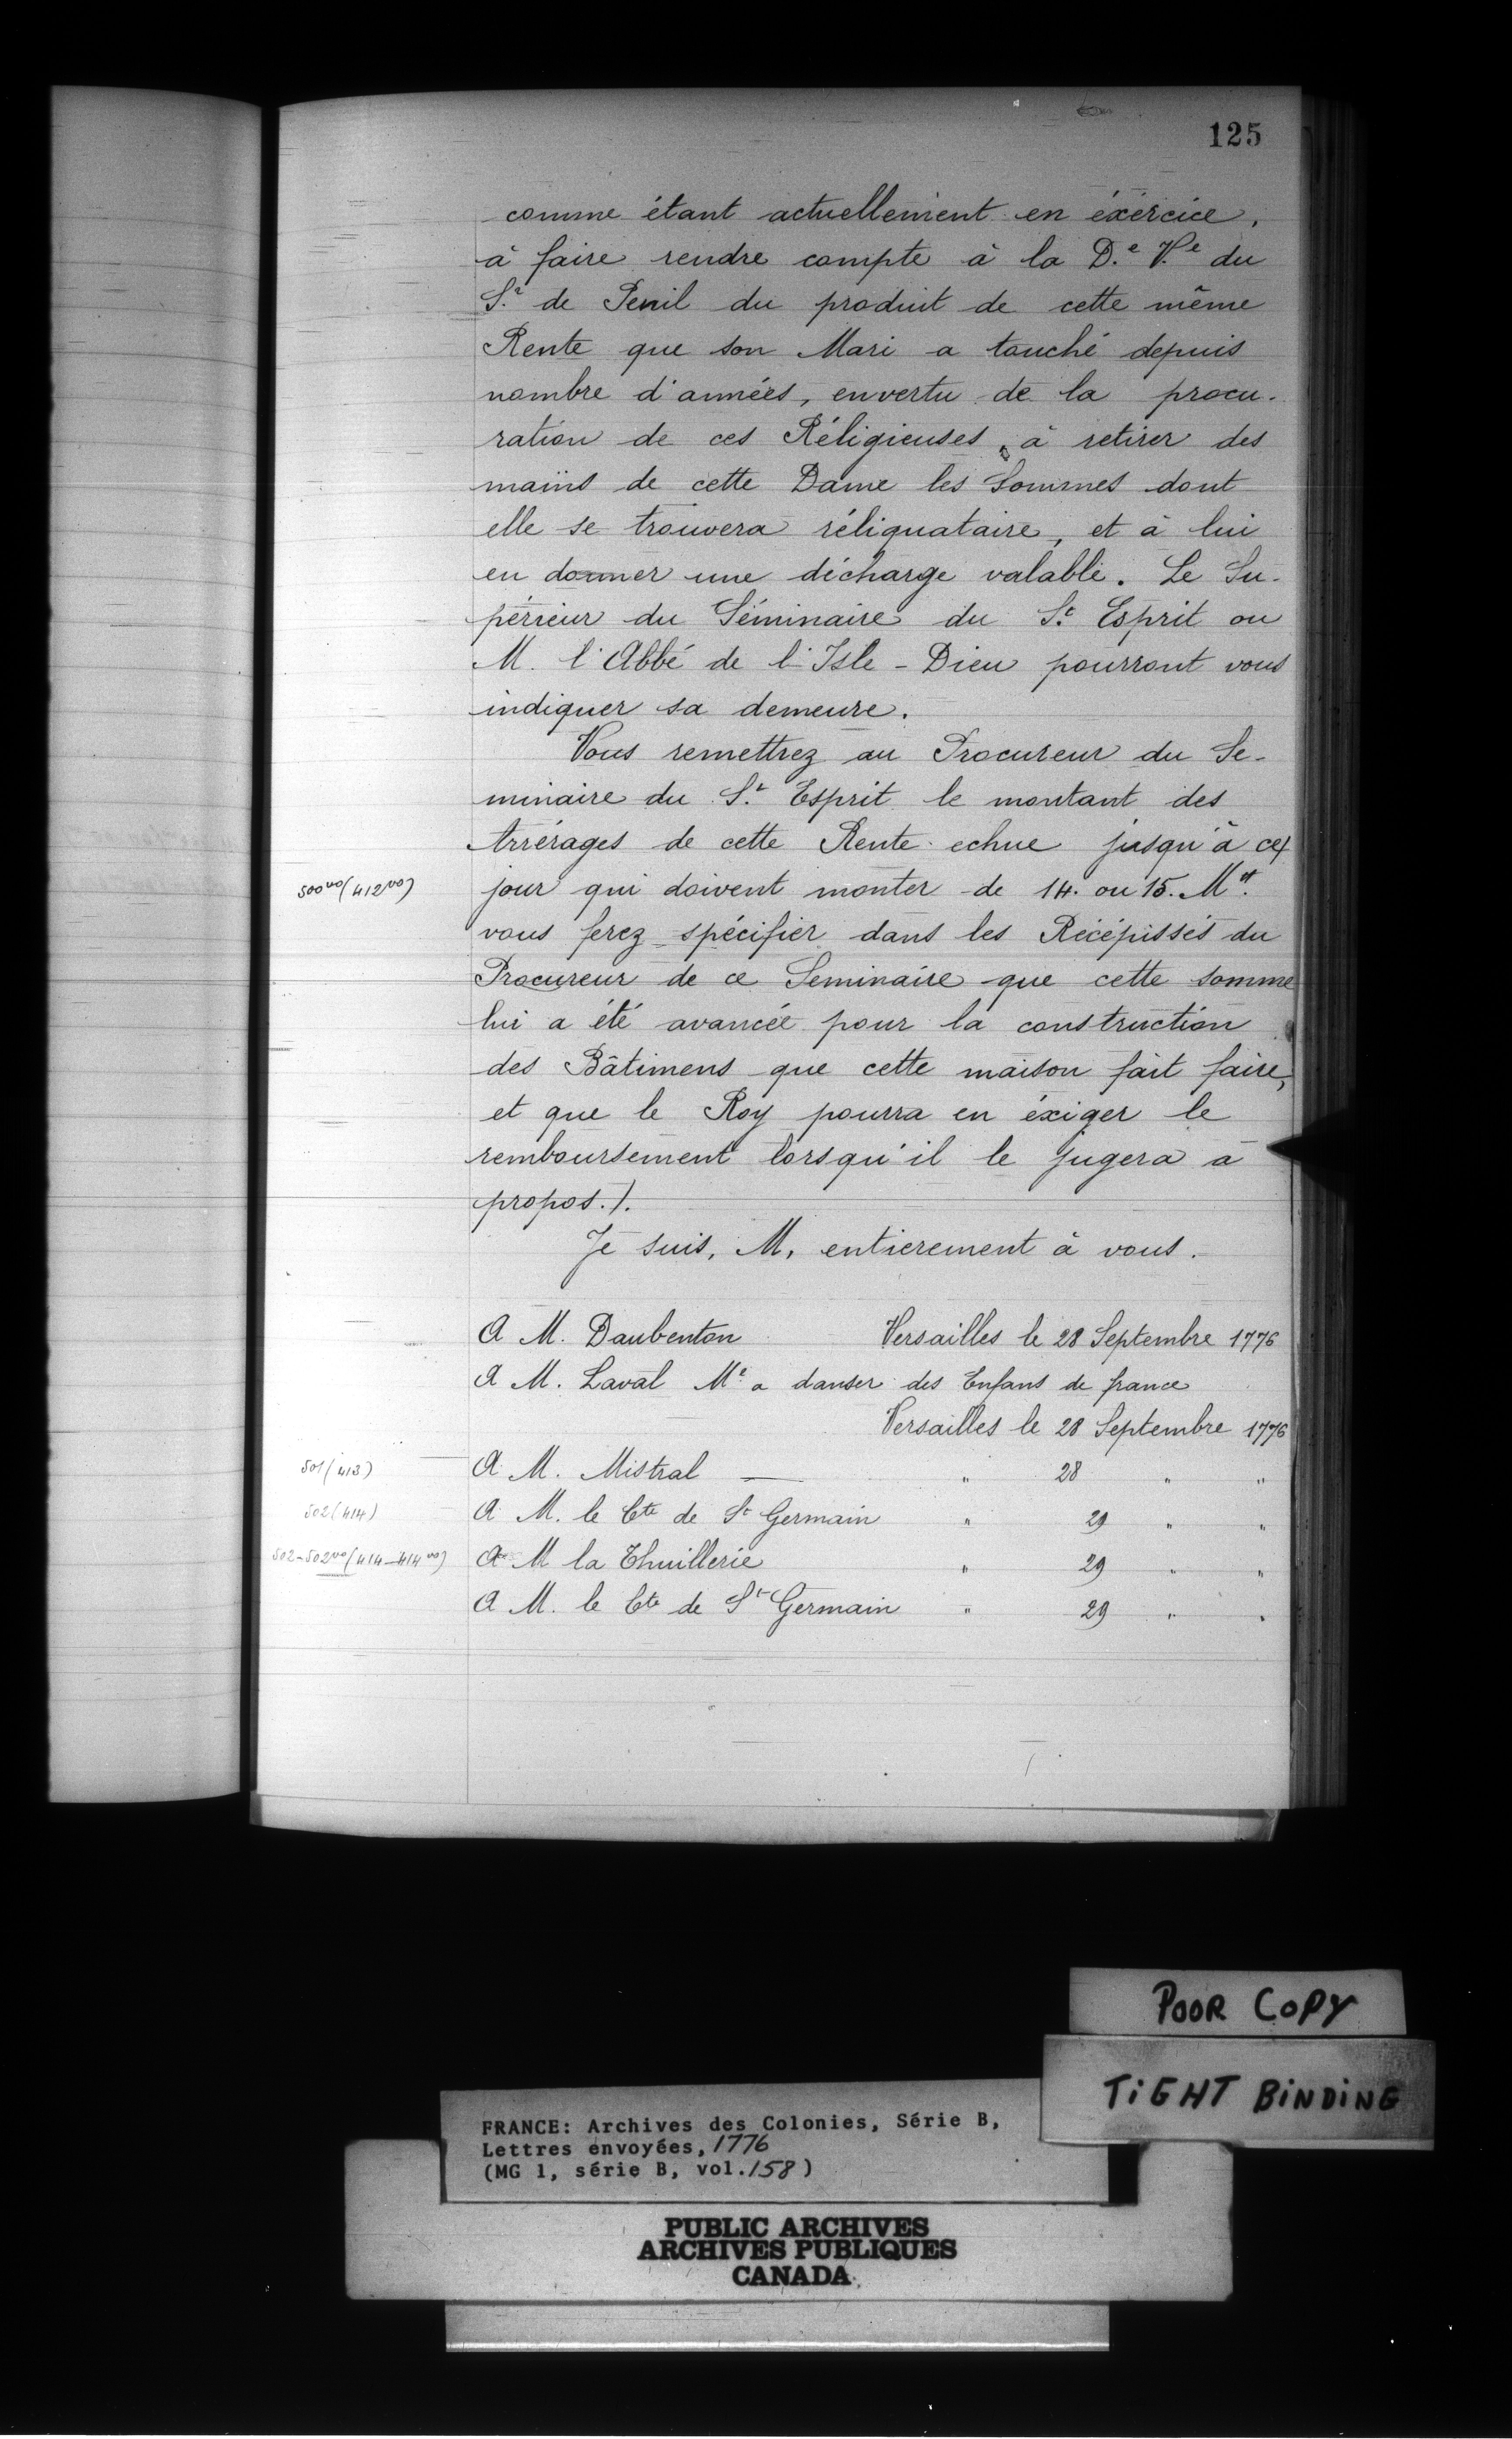 125
comme étant actuellement en éxércice,
à faire rendre compte à la D.e V.e du
S.r de Penil du produit de cette même
Rente que son Mari a touché depuis
nombre d'années, envertu de la procu-
ration de ces Réligieuses, à retirer des
mains de cette Dame les Sommes dont
elle se trouvera réliquataire, et à lui
en donner une décharge valable. Le Su-
périeur du Séminaire du S.t Esprit ou
M. l'Abbé de l'Isle-Dieu pourront vous
indiquer sa demeure.
Vous remettrez au Procureur du Se-
minaire du S.t Esprit le montant des
Arrérages de cette Rente echue jusqu'à ce
500vo (412vo) jour qui doivent monter de 14. ou 15. M tt.
vous ferez spécifier dans les Récépissés du
Procureur de ce Seminaire que cette somme
lui a été avancée pour la construction
des Bâtimens que cette maison fait faire,
et que le Roy pourra en éxiger le
remboursement lorsqu'il le jugera à
propos./.
Je suis, M, entierement à vous.
A M. Daubenton Versailles le 28 Septembre 1776
A M. Laval M.e a danser des Enfans de france
Versailles le 28 Septembre 1776
501 (413) A M. Mistral — " 28 " "
502 (414) A M. le Cte de St Germain " 29 " "
502-502vo (414-414vo) A M la Thuillerie " 29 " "
A M. le Cte de St Germain " 29 " "
POOR COPY
TIGHT BINDING
FRANCE: Archives des Colonies, Série B,
Lettres envoyées, 1776
(MG 1, série B, vol. 158)
PUBLIC ARCHIVES
ARCHIVES PUBLIQUES
CANADA